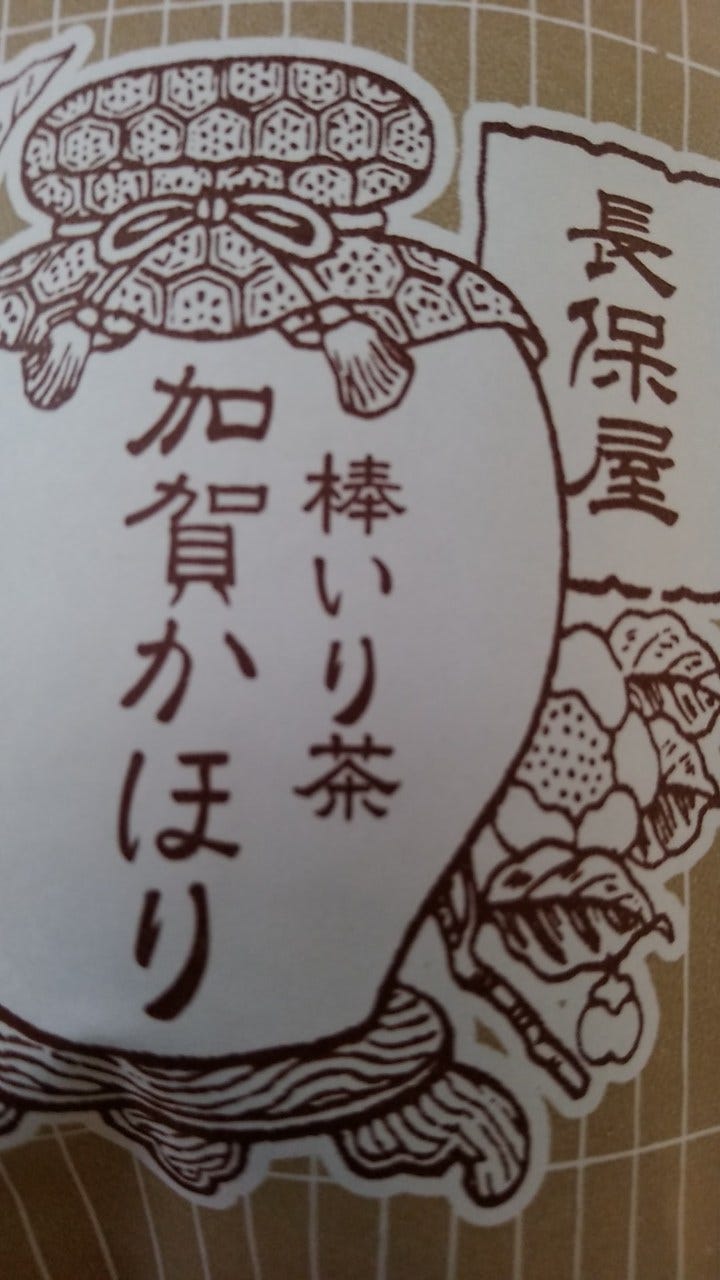 長保屋
棒いり茶
加賀かほり